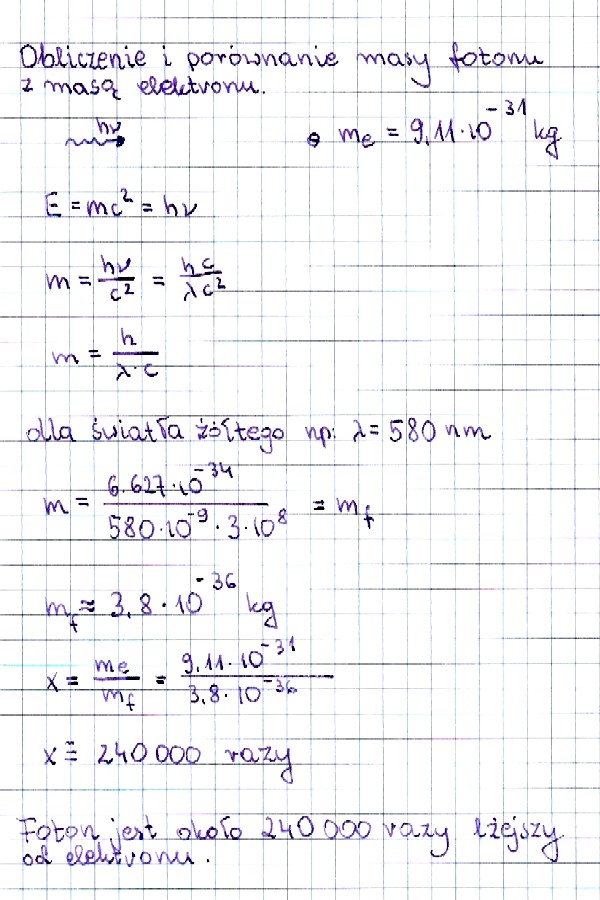 Obliczenie i porównanie masy fotonu
z masą elektronu.
hν
me = 9,11·10^-31 kg
E = mc² = hν
m = hν/c² = hc/λc²
m = h/λ·c
dla światła żółtego np: λ = 580 nm
m = 6.627·10^-34/580·10^-9·3·10^8 = mf
mf ≈ 3,8·10^-36 kg
x = me/mf = 9,11·10^-31/3,8·10^-36
x ≅ 240 000 razy
Foton jest około 240 000 razy lżejszy
od elektronu.